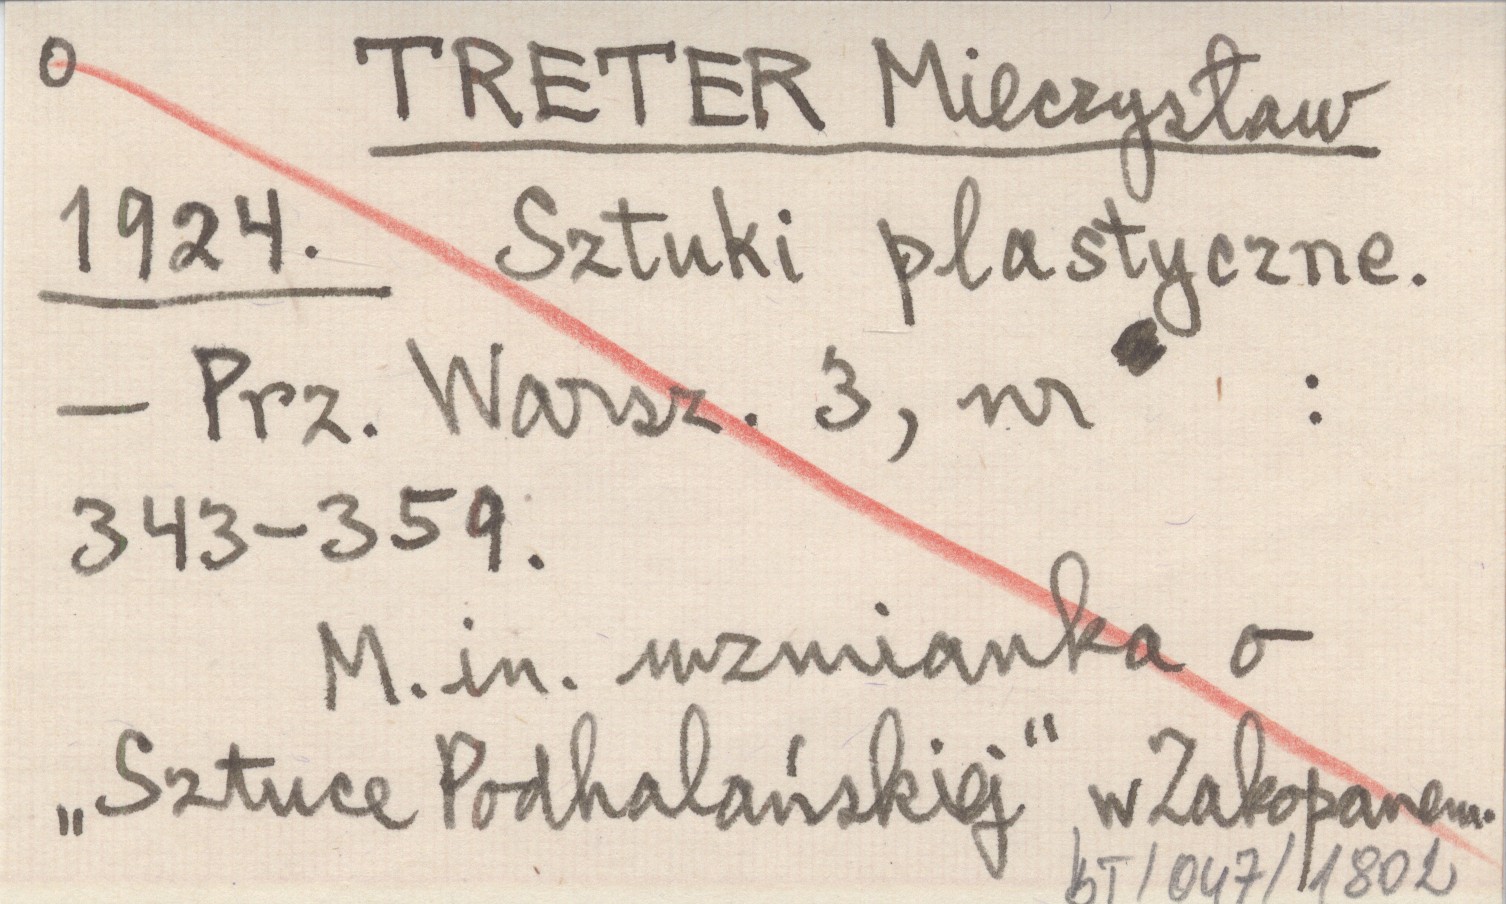 o TRETER Mieczysław
1924. Sztuki plastyczne.
— Prz. Warsz. 3, nr :
343-359.
M. in. wzmianka o
„Sztuce Podhalańskiej“ w Zakopanem.
bT/047/1802